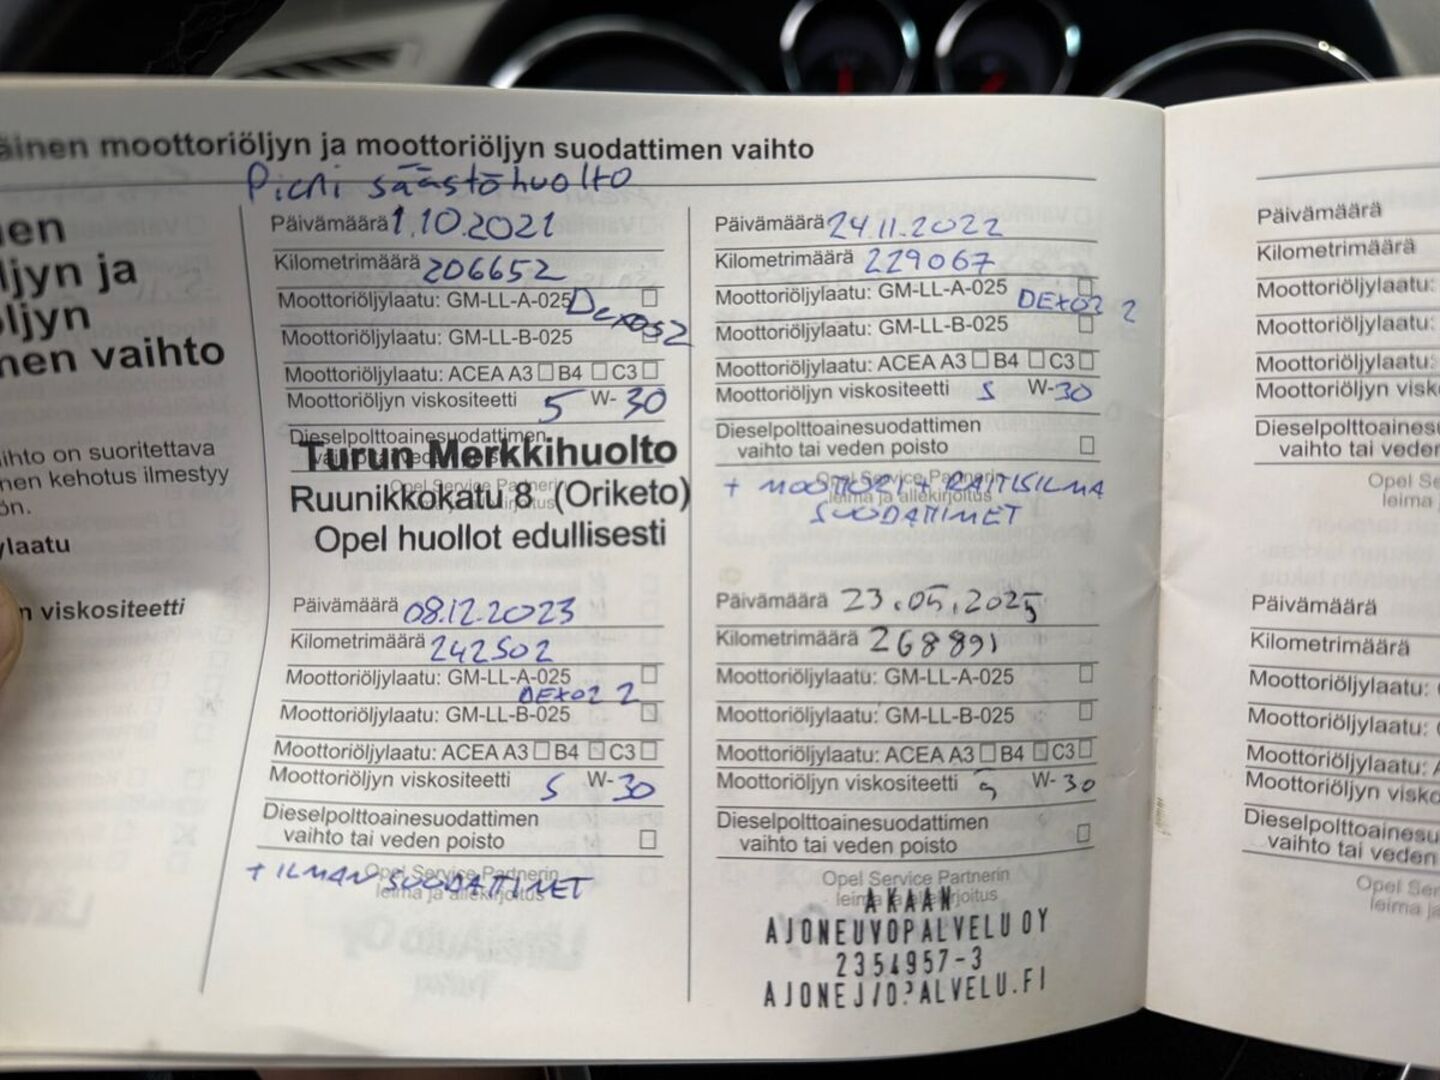 äinen moottoriöljyn ja moottoriöljyn suodattimen vaihto
Pieni säästöhuolto
nen
ljyn ja
öljyn
nen vaihto
ihto on suoritettava
nen kehotus ilmestyy
ön.
ylaatu
n viskositeetti
Päivämäärä 1.10.2021
Kilometrimäärä 206652
Moottoriöljylaatu: GM-LL-A-025 Dexos2
Moottoriöljylaatu: GM-LL-B-025
Moottoriöljylaatu: ACEA A3 B4 C3
Moottoriöljyn viskositeetti 5 W-30
Dieselpolttoainesuodattimen
Turun Merkkihuolto
Ruunikkokatu 8 (Oriketo)
Opel huollot edullisesti
Päivämäärä 24.11.2022
Kilometrimäärä 229067
Moottoriöljylaatu: GM-LL-A-025 DEXOS 2
Moottoriöljylaatu: GM-LL-B-025
Moottoriöljylaatu: ACEA A3 B4 C3
Moottoriöljyn viskositeetti 5 W-30
Dieselpolttoainesuodattimen
vaihto tai veden poisto
Opel Service Partnerin
leima ja allekirjoitus
+ MOOTTORI + RAITISILMA
SUODATTIMET
Päivämäärä 08.12.2023
Kilometrimäärä 242502
Moottoriöljylaatu: GM-LL-A-025
DEXOS 2
Moottoriöljylaatu: GM-LL-B-025
Moottoriöljylaatu: ACEA A3 B4 C3
Moottoriöljyn viskositeetti 5 W-30
Dieselpolttoainesuodattimen
vaihto tai veden poisto
Opel Service Partnerin
leima ja allekirjoitus
+ ILMANSUODATTIMET
Päivämäärä 23.05.2025
Kilometrimäärä 268891
Moottoriöljylaatu: GM-LL-A-025
Moottoriöljylaatu: GM-LL-B-025
Moottoriöljylaatu: ACEA A3 B4 C3
Moottoriöljyn viskositeetti 5 W-30
Dieselpolttoainesuodattimen
vaihto tai veden poisto
Opel Service Partnerin
leima ja allekirjoitus
AKAAN
AJONEUVOPALVELU OY
2354957-3
Päivämäärä
Kilometrimäärä
Moottoriöljylaatu:
Moottoriöljylaatu:
Moottoriöljylaatu:
Moottoriöljyn visk
Dieselpolttoainesu
vaihto tai veder
Opel Se
leima
Päivämäärä
Kilometrimäärä
Moottoriöljylaatu:
Moottoriöljylaatu:
Moottoriöljylaatu:
Moottoriöljyn visko
Dieselpolttoainesu
vaihto tai veden
Opel Ser
leima ja